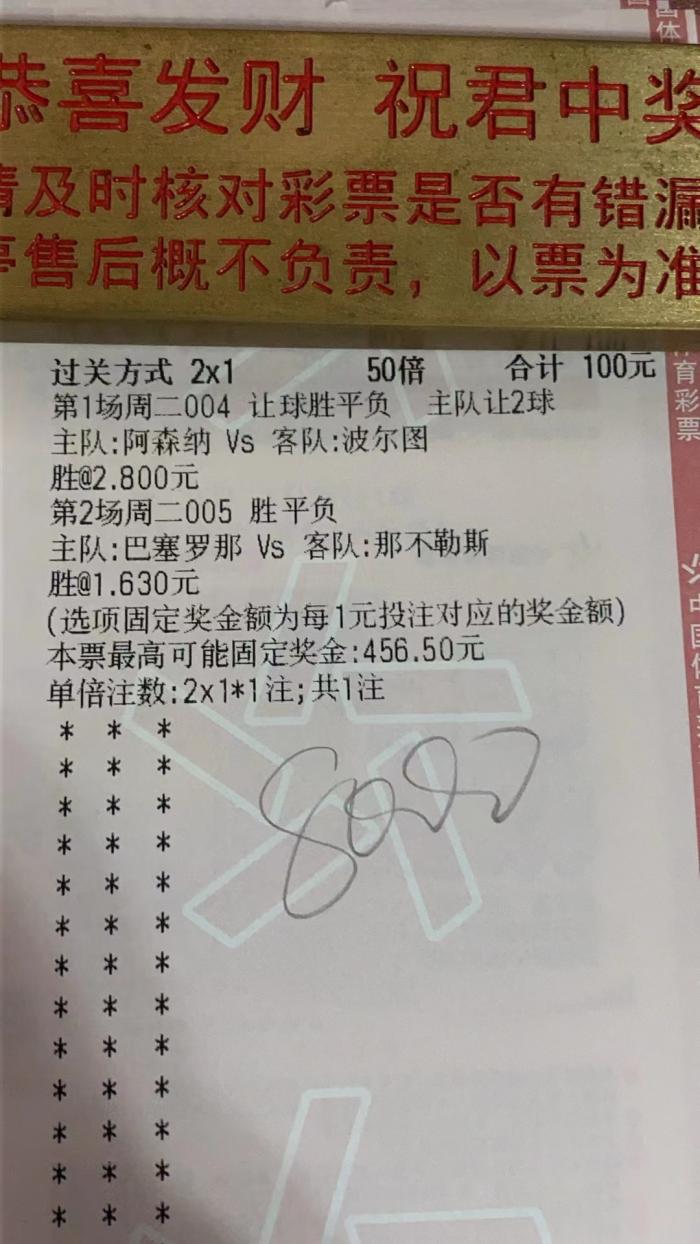 恭喜发财 祝君中奖
请及时核对彩票是否有错漏
售后概不负责，以票为准
过关方式 2x1 50倍 合计 100元
第1场周二004 让球胜平负 主队让2球
主队:阿森纳 Vs 客队:波尔图
胜@2.800元
第2场周二005 胜平负
主队:巴塞罗那 Vs 客队:那不勒斯
胜@1.630元
(选项固定奖金额为每1元投注对应的奖金额)
本票最高可能固定奖金:456.50元
单倍注数:2x1*1注;共1注
* * *
* * *
* * *
* * *
* * *
* * *
* * *
* * *
* * *
* * *
* * *
* * *
* * *
育彩票